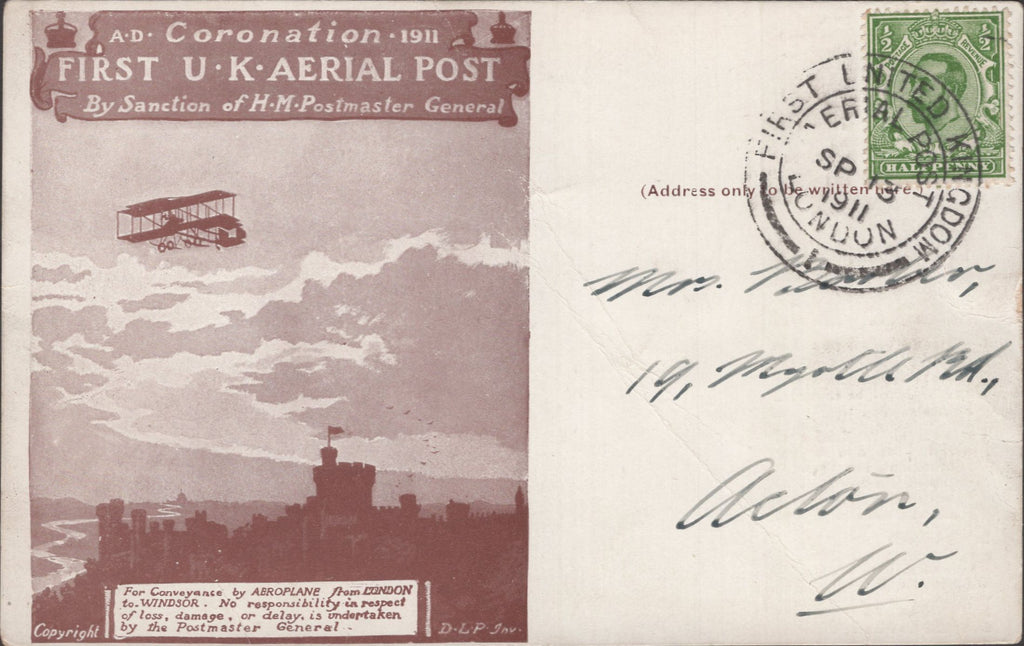 A·D· Coronation ·1911
FIRST U·K·AERIAL POST
By Sanction of H·M·Postmaster General
For Conveyance by AEROPLANE from LONDON
to WINDSOR. No responsibility in respect
of loss, damage, or delay, is undertaken
by the Postmaster General.
Copyright
D·L·P·Inv.
½ ½
POSTAGE REVENUE
HALFPENNY
FIRST UNITED KINGDOM
AERIAL POST
SP 13
1911
LONDON
1
(Address only to be written here.)
Mrs.
19, Myrtle Rd.,
Acton,
W.